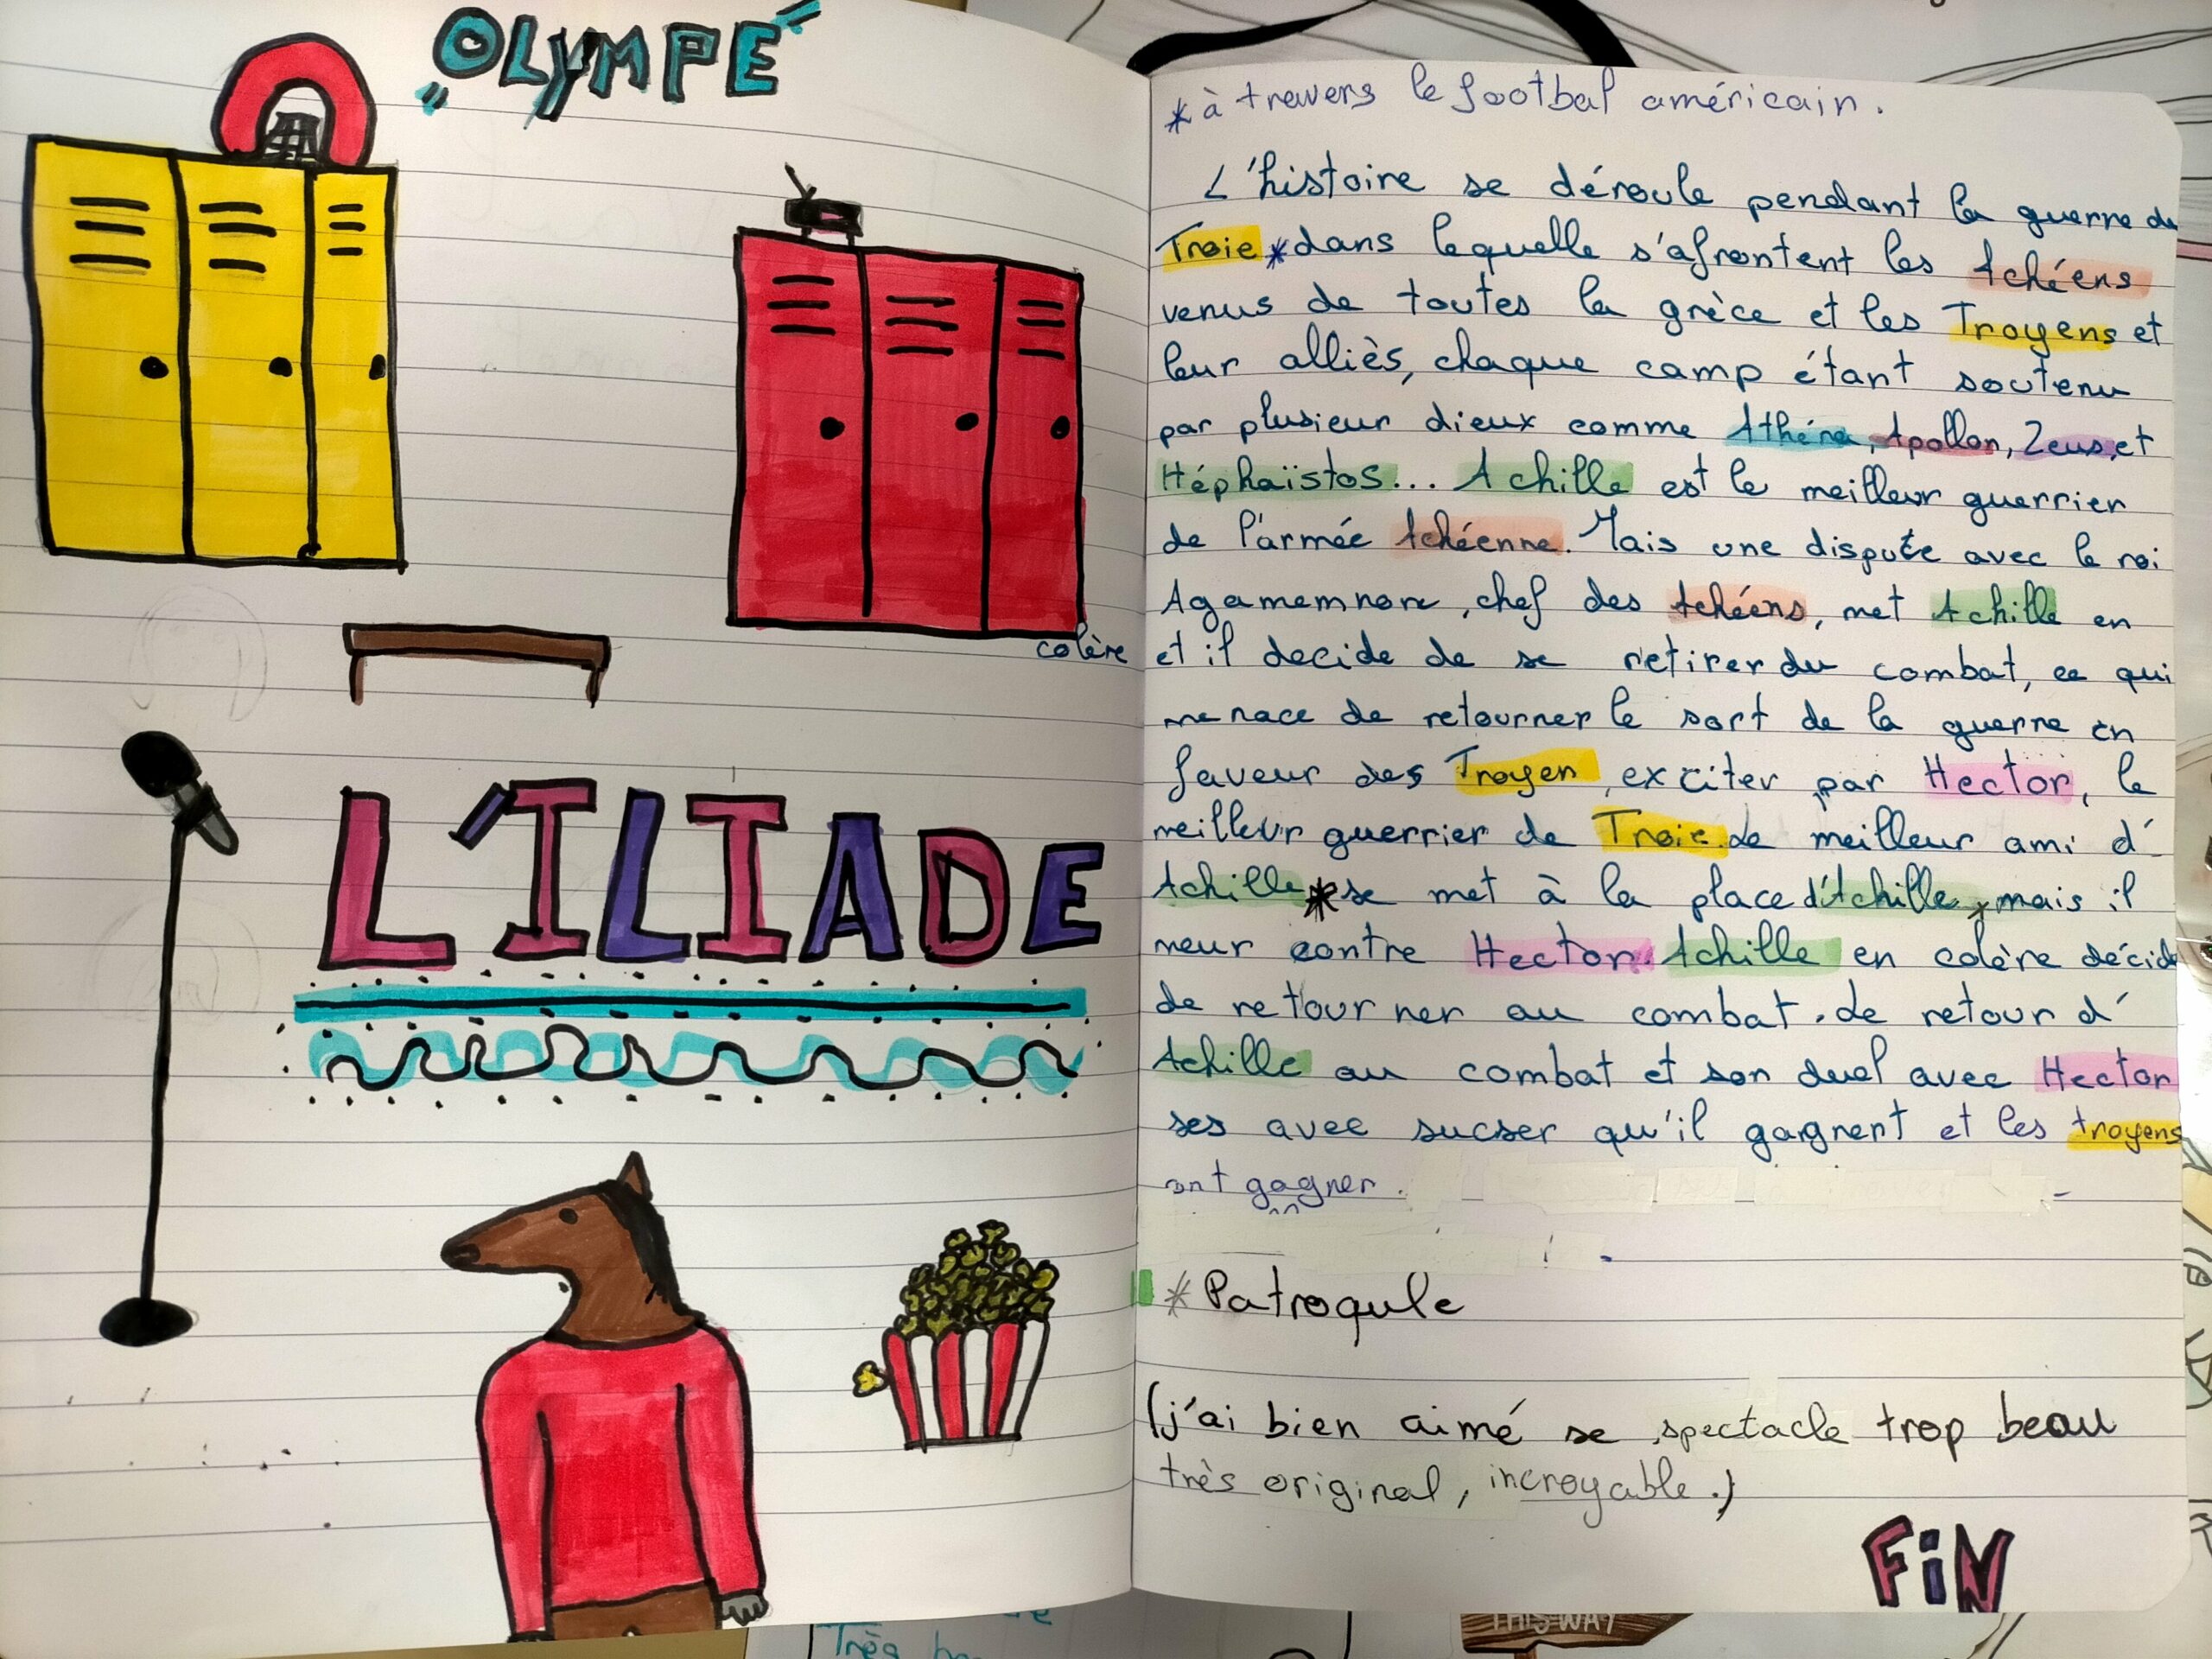 "OLYMPE"
L'ILIADE
*à travers le footbal américain.
L'histoire se déroule pendant la guerre de
Troie *dans lequelle s'afrontent les Achéens
venus de toutes la grèce et les Troyens et
leur alliès, chaque camp étant soutenu
par plusieur dieux comme Athéna, Apollon, Zeus, et
Héphaïstos... Achille est le meilleur guerrier
de l'armée Achéenne. Mais une dispute avec le roi
Agamemnon, chef des Achéens, met Achille en
colère et il decide de se retirer du combat, ce qui
menace de retourner le sort de la guerre en
faveur des Troyen, exciter par Hector, le
meilleur guerrier de Troie. Le meilleur ami d'
Achille *se met à la place d'Achille, mais il
meur contre Hector. Achille en colère décide
de retourner au combat. Le retour d'
Achille au combat et son duel avec Hector
ses avec sucser qu'il gagnent et les troyens
ont gagner.
* Patroqule
(j'ai bien aimé se spectacle trop beau
très original, incroyable.)
FiN
Très
THIS WAY